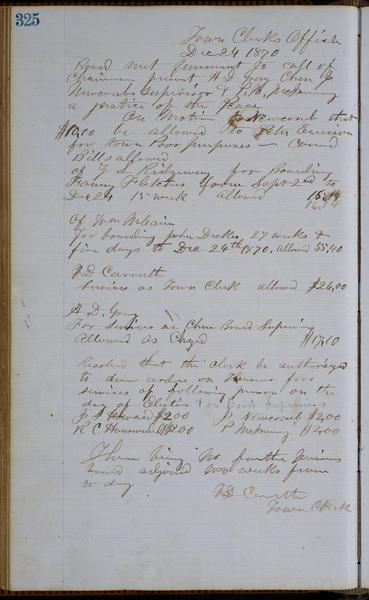 325
Town Clerks Office
Dec 24 1870
Board met pursuant to call of
chairman present H D Gray Chm J
Newcomb Supervisor & P. H. McKinny
a justice of the Peace
On Motion of Newcomb that
$10,00 be allowed to
for town Poor purposes — carried
Bills allowed
of T S Ridgeway for Boarding
Fanny Fletcher from Sept 2nd to
Dec 24 15 week allowed
Of Wm
for boarding John Dickey 27 weeks &
five days to Dec 24th 1870, allowed 55,40
V D Carruth
Services as Town Clerk allowed $26,00
H. D. Gray
For Services as Chm Board Supervisors
Allowed As Chgd $17,60
Resolved that the clerk be authorized
to draw order on Treasurer for
services of following person on the
day of Election
J A Howard $2.00 J Newcomb $2,00
H C $2,00 P McKinny $2,00
There being No further business
board adjourned two weeks from
to day
V D Carruth
Town Clerk